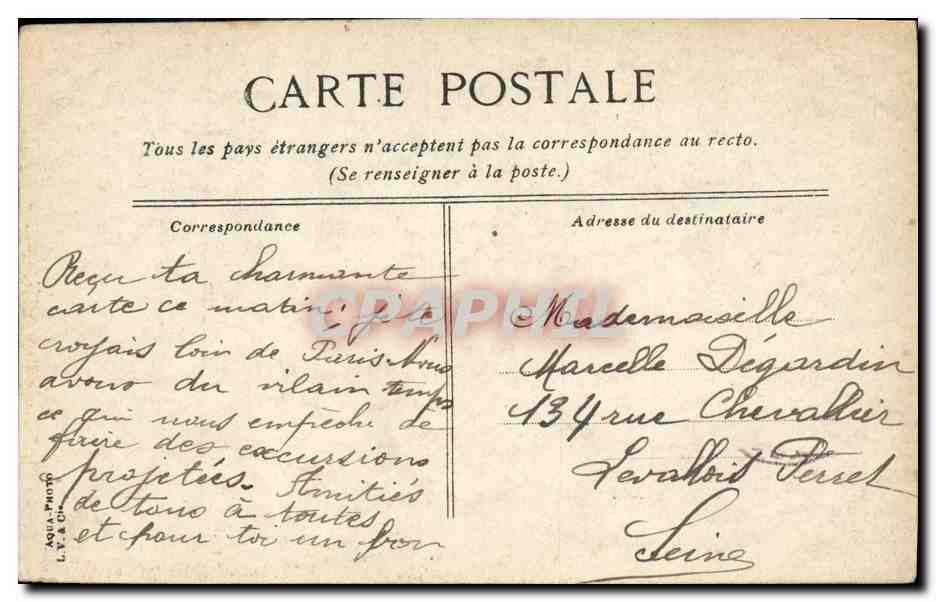 CARTE POSTALE
Tous les pays étrangers n'acceptent pas la correspondance au recto.
(Se renseigner à la poste.)
Correspondance
Reçu ta charmante
carte ce matin; je te
croyais loin de Paris. Nous
avons du vilain temps
ce qui nous empêche de
faire des excursions
projetées. Amitiés
de tous à toutes
et pour toi un bon
Adresse du destinataire
Mademoiselle
Marcelle Dégardin
134 rue Chevallier
Levallois Perret
Seine
AQUA-PHOTO
L. V. & Cie
CPAPHIL